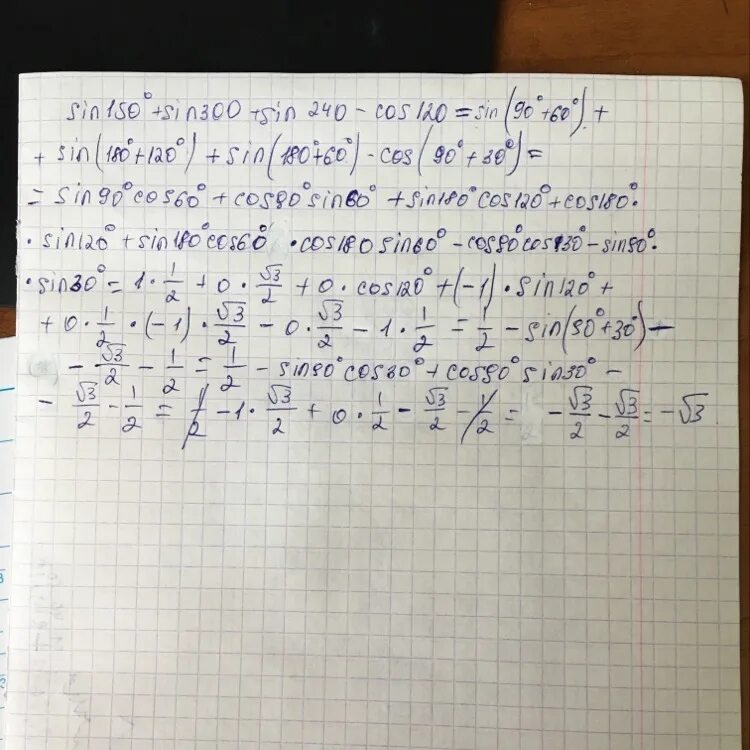 sin150° + sin300 + sin 240 - cos120 = sin(90°+60°) +
+ sin(180°+120°) + sin(180°+60°) - cos(90°+30°) =
= sin90°cos60° + cos90°sin60° + sin180°cos120° + cos180°·
· sin120° + sin180°cos60° · cos180 sin60° - cos90°cos30° - sin90°·
· sin30° = 1 · 1/2 + 0 · √3/2 + 0 · cos120° + (-1) · sin120° +
+ 0 · 1/2 · (-1) · √3/2 - 0 · √3/2 - 1 · 1/2 = 1/2 - sin(90°+30°) -
- √3/2 - 1/2 = 1/2 - sin90°cos30° + cos90°sin30° -
- √3/2 - 1/2 = 1/2 - 1 · √3/2 + 0 · 1/2 - √3/2 - 1/2 = - √3/2 - √3/2 = -√3